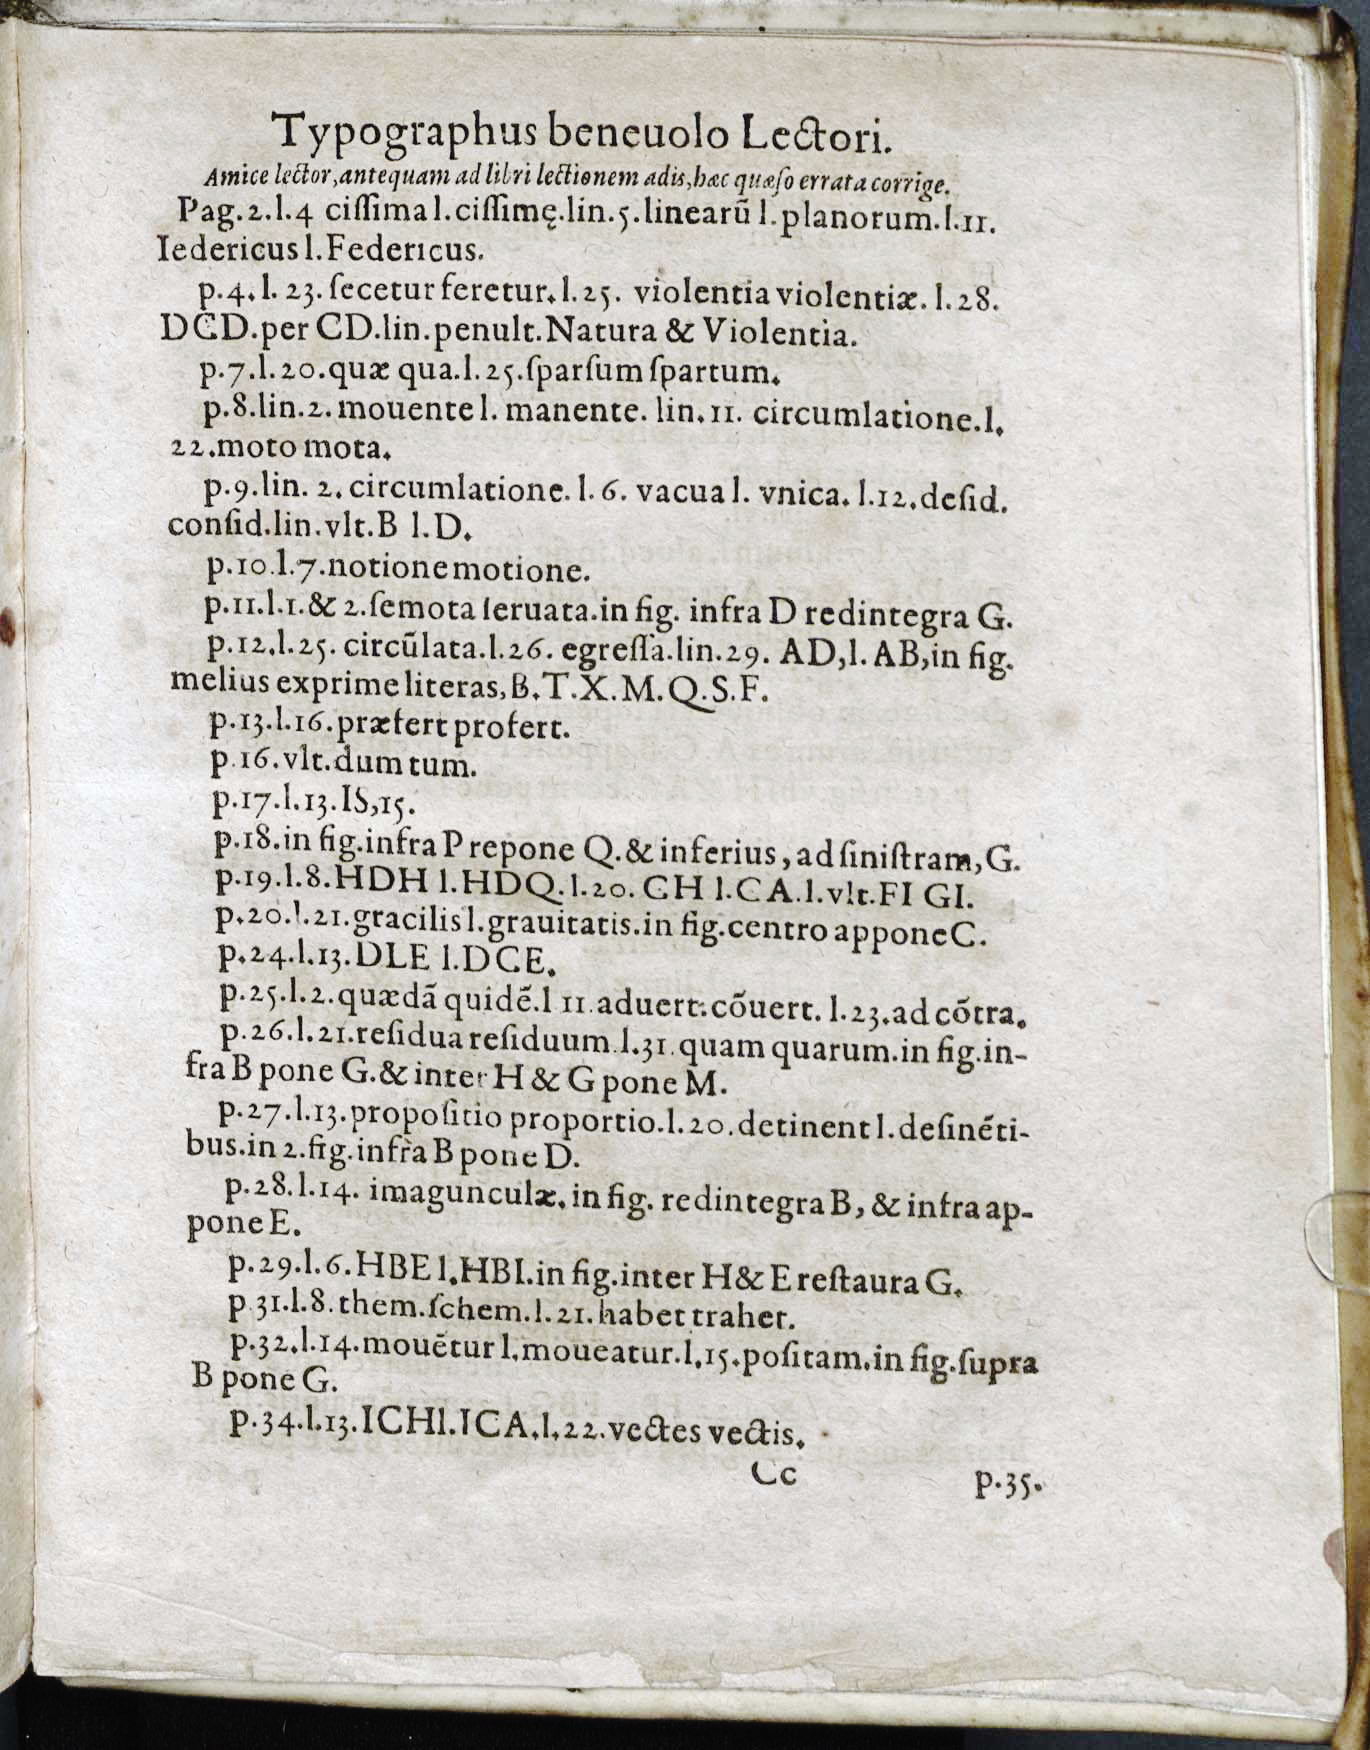 Typographus beneuolo Lectori.
Amice lector,antequam ad libri lectionem adis,hæc quæſo errata corrige.
Pag.2.l.4 ciſſima l.ciſſimę.lin.5.linearũ l.planorum.l.11.
Iedericus l.Federicus.
p.4.l.23.ſecetur feretur.l.25. violentia violentiæ. l.28.
DCD.per CD.lin.penult.Natura & Violentia.
p.7.l.20.quæ qua.l.25.ſparſum ſpartum.
p.8.lin.2.mouente l. manente. lin.11. circumlatione.l.
22.moto mota.
p.9.lin. 2.circumlatione. l. 6. vacua l. vnica. l.12.deſid.
conſid.lin.vlt.B l.D.
p.10.l.7.notione motione.
p.11.l.1.& 2.ſemota ſeruata.in fig. infra D redintegra G.
p.12.l.25. circũlata.l.26. egreſſa.lin.29. AD,l.AB,in fig.
melius exprime literas,B.T.X.M.Q.S.F.
p.13.l.16.præfert profert.
p.16.vlt.dum tum.
p.17.l.13.IS,15.
p.18.in fig.infra P repone Q.& inferius, ad ſiniſtram,G.
p.19.l.8.HDH l.HDQ.l.20.CH l.CA.l.vlt.FI GI.
p.20.l.21.gracilis l.grauitatis.in fig.centro appone C.
p.24.l.13.DLE l.DCE.
p.25.l.2.quædã quidẽ.l 11.aduert.cõuert. l.23.ad cõtra.
p.26.l.21.reſidua reſiduum.l.31.quam quarum.in fig.in-
fra B pone G.& inter H & G pone M.
p.27.l.13.propoſitio proportio.l.20.detinent l.deſinẽti-
bus.in 2.fig.infra B pone D.
p.28.l.14. imagunculæ.in fig. redintegra B, & infra ap-
pone E.
p.29.l.6.HBE l.HBI.in fig.inter H & E reſtaura G.
p.31.l.8.them.ſchem.l.21.habet trahet.
p.32.l.14.mouẽtur l.moueatur.l.15.poſitam.in fig.ſupra
B pone G.
p.34.l.13.ICHl.ICA.l.22.vectes vectis.
Cc p.35.